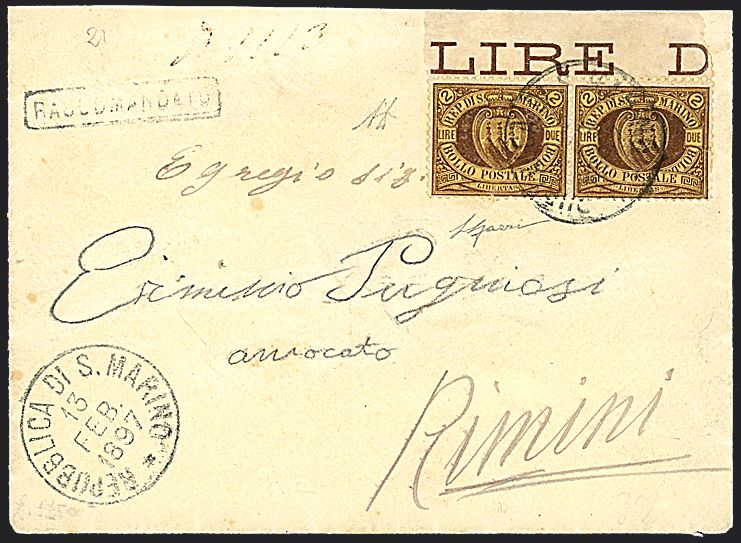 21
LIRE D
RACCOMANDATO
2 REP. DI S. MARINO 2
LIRE DUE
BOLLO POSTALE
LIBERTAS
2 REP. DI S. MARINO 2
LIRE DUE
BOLLO POSTALE
LIBERTAS
All
Egregio Sig.
Erminio Pugnosi
avvocato
Rimini
REPUBBLICA DI S. MARINO
13
FEB.
1897